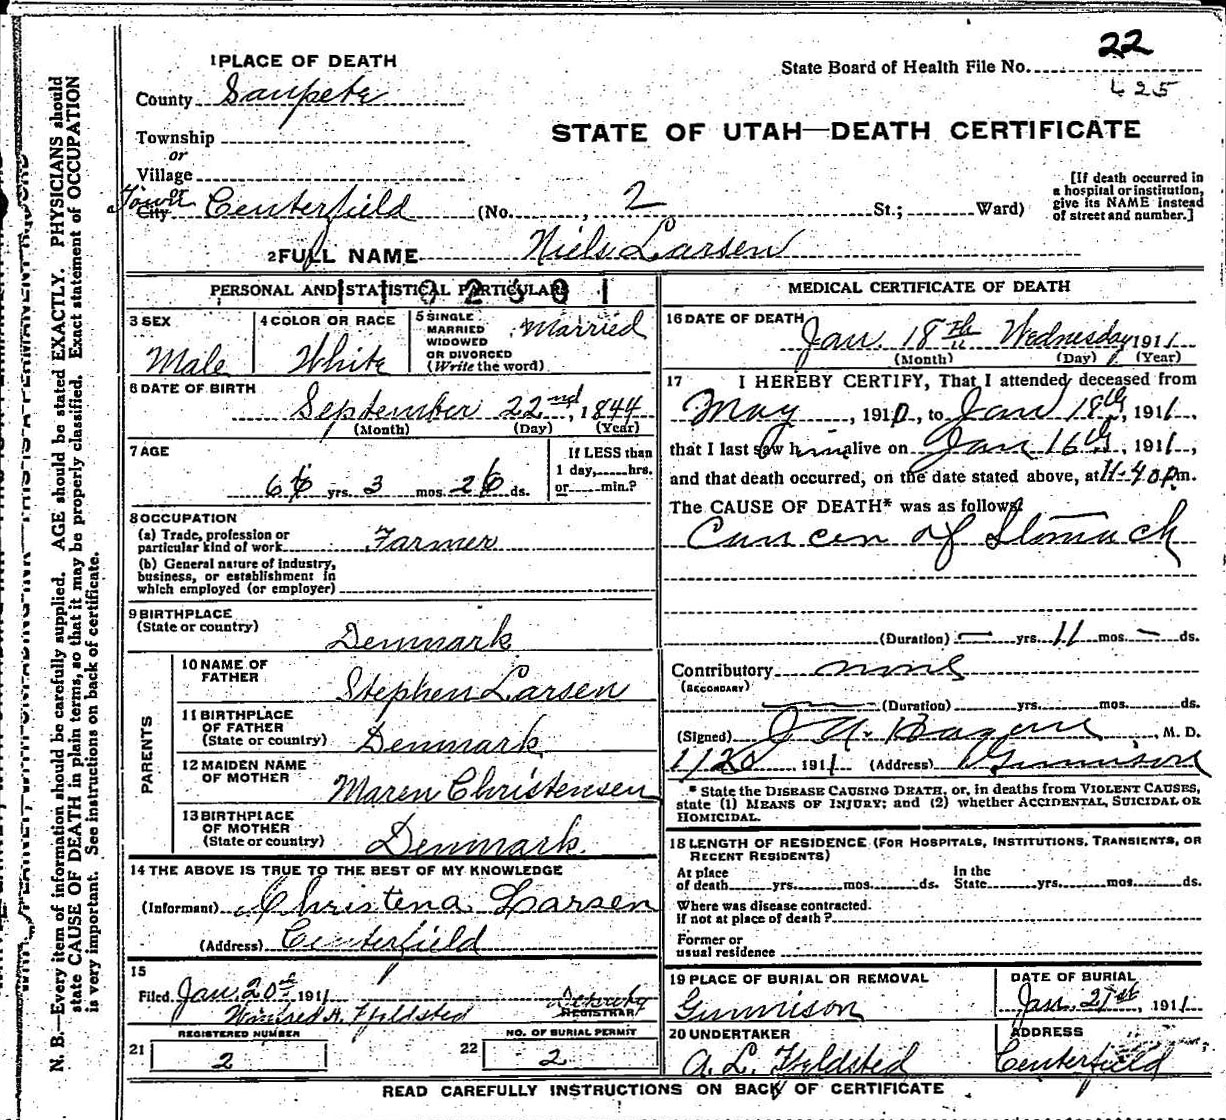 22
1 PLACE OF DEATH
State Board of Health File No.
425
County Sanpete
STATE OF UTAH—DEATH CERTIFICATE
Township
or
Village
Town or
City Centerfield (No. , 2 St.; Ward)
[If death occurred in
a hospital or institution,
give its NAME instead
of street and number.]
2 FULL NAME Niels Larsen
PERSONAL AND STATISTICAL PARTICULARS
3 SEX
Male
4 COLOR OR RACE
White
5 SINGLE
MARRIED
WIDOWED
OR DIVORCED
(Write the word)
Married
6 DATE OF BIRTH
September 22nd, 1844
(Month) (Day) (Year)
7 AGE
66 yrs. 3 mos. 26 ds.
If LESS than
1 day, hrs.
or min.?
8 OCCUPATION
(a) Trade, profession or
particular kind of work Farmer
(b) General nature of industry,
business, or establishment in
which employed (or employer)
9 BIRTHPLACE
(State or country)
Denmark
PARENTS
10 NAME OF
FATHER
Stephen Larsen
11 BIRTHPLACE
OF FATHER
(State or country)
Denmark
12 MAIDEN NAME
OF MOTHER
Maren Christensen
13 BIRTHPLACE
OF MOTHER
(State or country)
Denmark
14 THE ABOVE IS TRUE TO THE BEST OF MY KNOWLEDGE
(Informant) Christena Larsen
(Address) Centerfield
15
Filed Jan. 20th 1911
Winifred A. Fjeldsted
REGISTRAR
REGISTERED NUMBER
21 2
NO. OF BURIAL PERMIT
22 2
MEDICAL CERTIFICATE OF DEATH
16 DATE OF DEATH
Jan. 18th Wednesday, 1911
(Month) (Day) (Year)
17 I HEREBY CERTIFY, That I attended deceased from
May , 1910, to Jan 18th, 1911,
that I last saw him alive on Jan 16th, 1911,
and that death occurred, on the date stated above, at 11-40 p.m.
The CAUSE OF DEATH* was as follows:
Cancer of Stomach
(Duration) — yrs. 11 mos. — ds.
Contributory none
(SECONDARY)
(Duration) yrs. mos. ds.
(Signed) J A. Hagan , M. D.
1/20 1911 (Address) Gunnison
* State the DISEASE CAUSING DEATH, or, in deaths from VIOLENT CAUSES,
state (1) MEANS OF INJURY; and (2) whether ACCIDENTAL, SUICIDAL OR
HOMICIDAL.
18 LENGTH OF RESIDENCE (FOR HOSPITALS, INSTITUTIONS, TRANSIENTS, OR
RECENT RESIDENTS)
At place
of death yrs. mos. ds.
In the
State yrs. mos. ds.
Where was disease contracted.
if not at place of death?
Former or
usual residence
19 PLACE OF BURIAL OR REMOVAL
Gunnison
DATE OF BURIAL
Jan. 21st, 1911
20 UNDERTAKER
A. L. Fjeldsted
ADDRESS
Centerfield
READ CAREFULLY INSTRUCTIONS ON BACK OF CERTIFICATE
N. B.—Every item of information should be carefully supplied. AGE should be stated EXACTLY. PHYSICIANS should
state CAUSE OF DEATH in plain terms, so that it may be properly classified. Exact statement of OCCUPATION
is very important. See instructions on back of certificate.